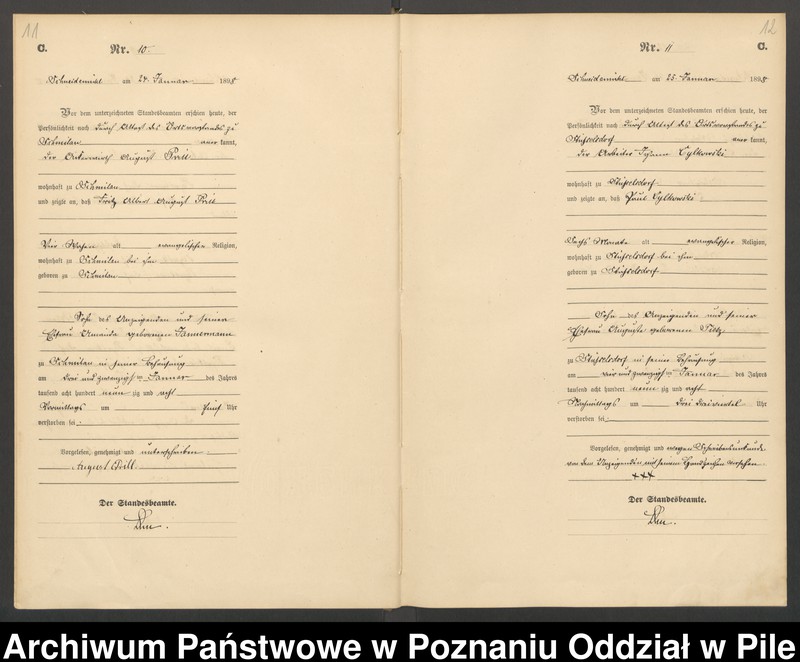 11
C.
Nr. 10.
Schneidemühl am 24. Januar 1898
Vor dem unterzeichneten Standesbeamten erschien heute, der
Persönlichkeit nach durch Attest des Ortsvorstandes zu
kannt,
der Ackerwirth August Prill
wohnhaft zu
und zeigte an, daß Fritz Albert August Prill
Vier Wochen alt evangelischer Religion,
wohnhaft zu bei ihm
geboren zu
Sohn des Anzeigenden und seiner
Ehefrau Amanda geborenen Tannermann
zu in seiner Behausung
am drei und zwanzigsten Januar des Jahres
tausend acht hundert neun zig und acht
Vormittags um fünf Uhr
verstorben sei.
Vorgelesen, genehmigt und unterschrieben
August Prill
Der Standesbeamte.
12
C.
Nr. 11
Schneidemühl am 25. Januar 1898
Vor dem unterzeichneten Standesbeamten erschien heute, der
Persönlichkeit nach durch Attest des Ortsvorstandes zu
Stüsselsdorf kannt,
der Arbeiter Johann Cylkowski
wohnhaft zu Stüsselsdorf
und zeigte an, daß Paul Cylkowski
Sechs Monate alt evangelischer Religion,
wohnhaft zu Stüsselsdorf bei ihm
geboren zu Stüsselsdorf
Sohn des Anzeigenden und seiner
Ehefrau Auguste geborenen
zu Stüsselsdorf in seiner Behausung
am vier und zwanzigsten Januar des Jahres
tausend acht hundert neun zig und acht
Nachmittags um drei dreiviertel Uhr
verstorben sei.
Vorgelesen, genehmigt und wegen Schreibensunkunde
von dem Anzeigenden mit seinem Handzeichen versehen
+++
Der Standesbeamte.
Archiwum Państwowe w Poznaniu Oddział w Pile